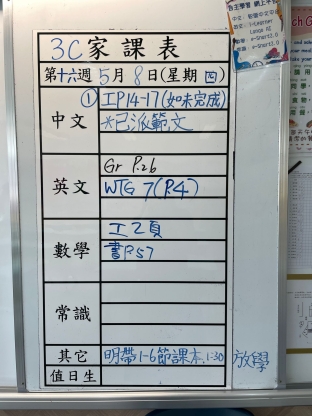 3C家課表
第十六週5月8日(星期四)
中文
①工P14-17(如未完成)
*已派範文
英文
Gr P.26
WTG 7(P.4)
數學
工2頁
書P.57
常識
其它
明帶1-6節課本,1:30放學
值日生
自主學習 網上平台